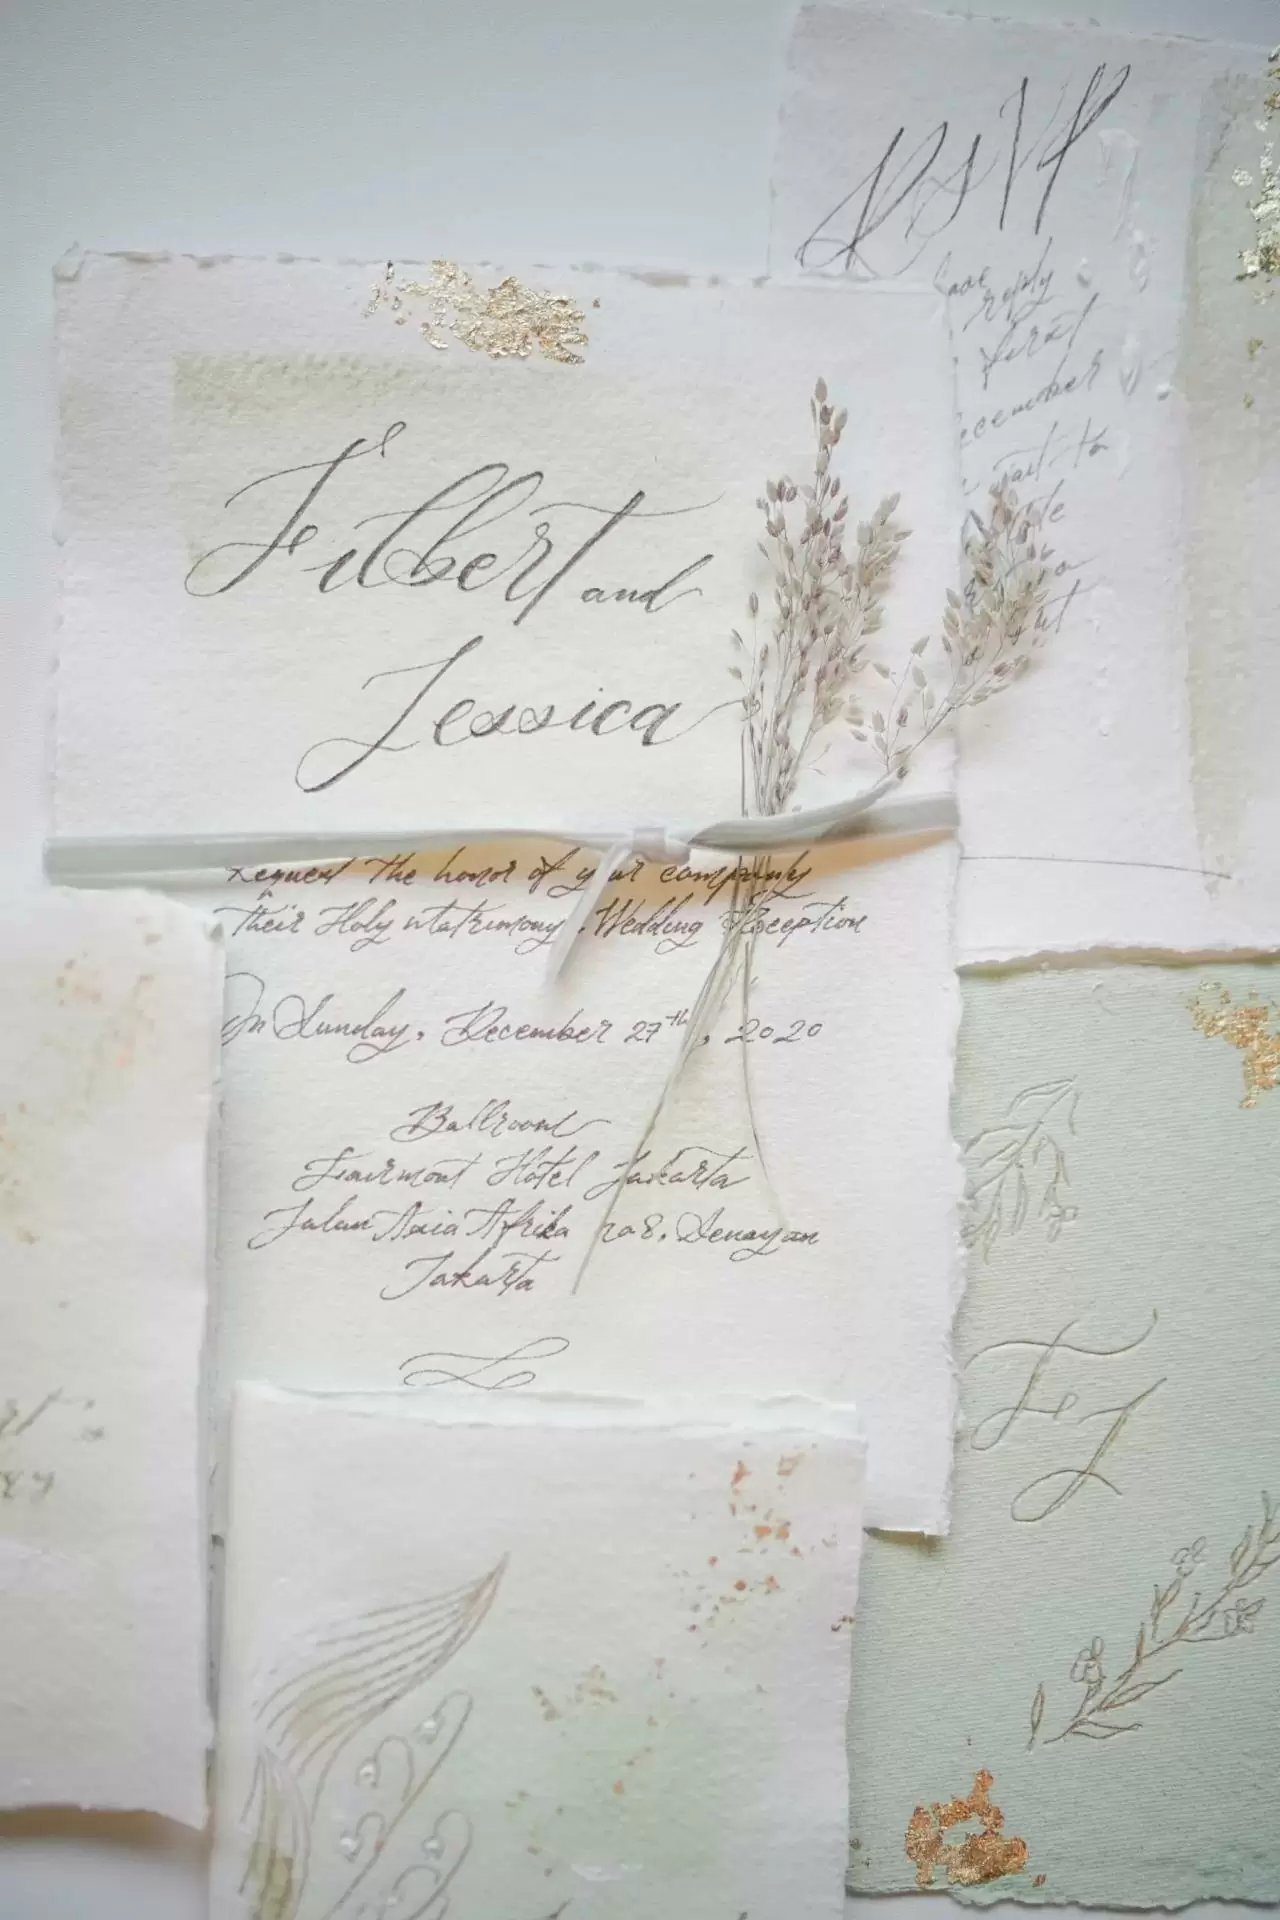 Filbert and
Jessica
Request the honor of your company
Their Holy Matrimony & Wedding Reception
On Sunday, December 27th, 2020
Ballroom
Fairmont Hotel Jakarta
Jalan Asia Afrika no8, Senayan
Jakarta
RSVP
reply
first
F J